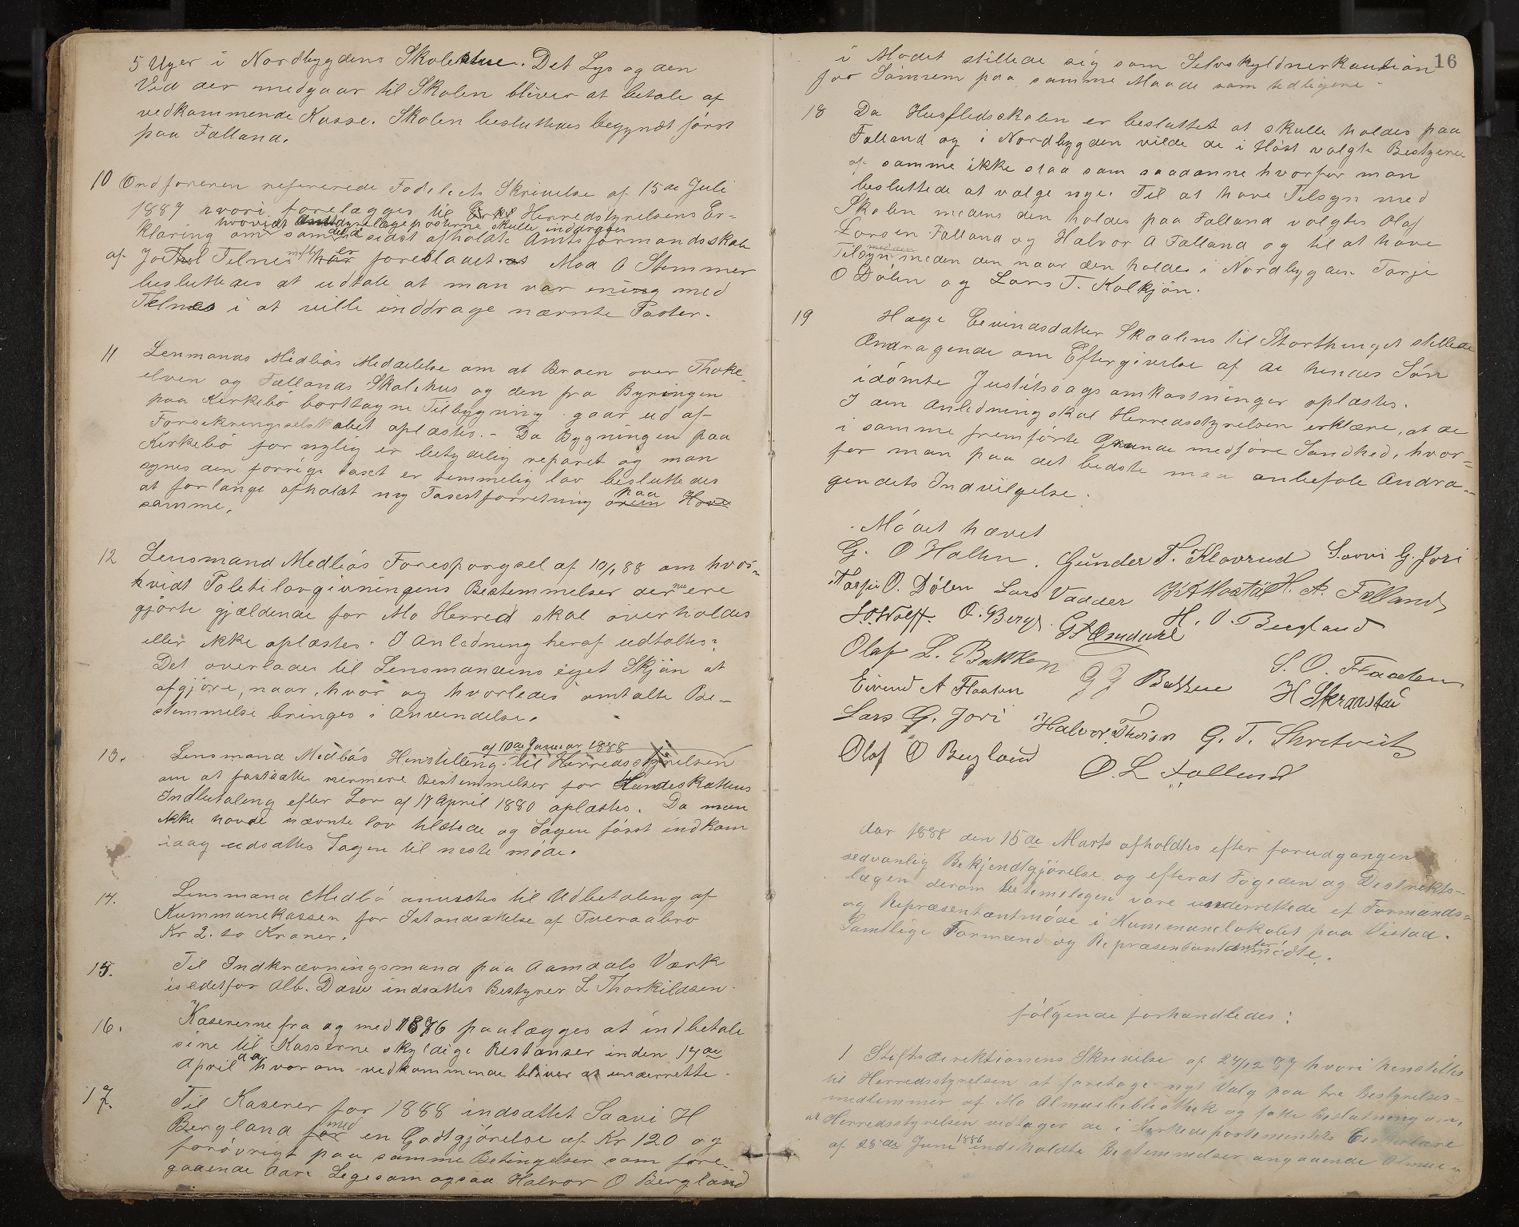 5 Uger i Nordbygdens Skolestue. Det Lys og den
Ved der medgaar til Skolen bliver at betale af
vedkommende Kasse. Skolen besluttedes begyndt først
paa Falland.
10 Ordføreren refererede Fogdets Skrivelse af 15de Juli
1887 hvori forelægges til Herredstyrelsens Er-
hvorvidt skulle inddrages
klæring om sidst afholdte Amtsformandsskab
af Jo Telnes foreslaaet. Mod 6 Stemmer
besluttedes at udtale at man var enig med
Telnes i at ville inddrage nævnte Poster.
11 Lensmands Midbøs Meddelelse om at Broen over Thoke-
elven og Fallands Skolehus og den fra Bygningen
paa Kirkebø borttagne Tilbygning gaar ud af
Forsikringsselskabet oplæstes. - Da Bygningen paa
Kirkebø for nylig er betydelig reparet og man
synes den forrige taxt er temmelig lav besluttedes
at forlange afholdt ny Taxtforretning paa
samme.
12 Lensmand Medbøs Forespørgsel af 10/1 88 om hvor-
hvidt Politilovgivningens Bestemmelser der ere
gjorte gjældende for Mo Herred skal overholdes
eller ikke oplæstes. I Anledning heraf udtaltes:
Det overlades til Lensmandens eget Skjøn at
afgjøre, naar, hvor og hvorledes omtalte Be-
stemmelse bringes i Anvendelse.
af 10de Januar 1888
13. Lensmand Medbøs Henstilling til Herredsstyrelsen
om at fastsætte nærmere Bestemmelser for Hundeskattens
Indbetaling efter Lov af 17 April 1880 oplæstes. Da man
ikke havde nævnte lov tilstede og Sagen først indkom
idag udsattes Sagen til neste møde.
14. Lensmand Medbø anvistes til Udbetaling af
Kummunekassen for Istandsættelse af Tveraabro
Kr 2. to Kroner.
15. Til Indkrævningsmand paa Aamdals Værk
istedetfor Alb. Dane indsattes Bestyrer L Thorkildsen.
16. Kasererne fra og med 1886 paalægges at indbetale
sine til Kasserne skyldige Restanser inden 14de
April d.a. hvorom vedkommende bliver at underrette.
17. Til Kaserer for 1888 indsattes Saavi H
Bergland med en Godtgjørelse af Kr 120 og
forøvrigt paa samme Betingelser som fore-
gaaende Aar. Ligesom ogsaa Halvor O Bergland
16
i Mødet stillede sig som Selvskyldnerkaution
for Samsem paa samme Maade som tidligere.
18 Da Husflidsskolen er besluttet at skulle holdes paa
Falland og i Nordbygden vilde de i Høst valgte Bestyrere
af samme ikke staa som saadanne hvorfor man
besluttede at vælge nye. Til at have Tilsyn med
Skolen medens den holdes paa Falland valgtes Olaf
Larsen Falland og Halvor A Falland og til at have
Tilsyn med den naar den holdes i Nordbygden Tarje
O Dølen og Lars T. Kolkjøn.
19 Hæge Eevindsdatter Skaalens til Storthinget stillede
Andragende om Eftergivelse af de hendes Søn
idømte Justitssagsomkostninger oplæstes.
I den Anledning skal Herredsstyrelsen erklære, at de
i samme fremførte Grunde medføre Sandhed, hvor-
for man paa det bedste maa anbefale Andra-
gendets Indvilgelse.
Mødet hævet
G. O Holten. Gunder T. Klovrud Saavi G. Jori
Tarjei O. Dølen Lars Vadder H. A. Falland
S. O. Wolff. O. Berge. G Aamdal H. O. Bergland
Olaf L. Bakken G G Bakken S. O. Flaaten
Eivind A Flaaten H Skranstad
Lars G. Jori Halvor Thoresen G. T. Skretveit
Olaf O Bergland O. L Falland
Aar 1888 den 15de Marts afholdtes efter forudgangen
sedvanlig Bekjendtgjørelse og efterat Fogeden og Distrikts-
lægen derom betimeligen vare underrettede et Formands-
og Repræsentantmøde i Kummunelokalet paa Vistad.
Samtlige Formænd og Repræsentanter mødte.
følgende forhandledes:
1 Stiftsdirektionens Skrivelse af 24/12 87 hvori henstilles
til Herredsstyrelsen at foretage nyt Valg paa tre bestyrelses-
medlemmer af Mo Almuebibliothek og fatte beslutning om,
at Herredsstyrelsen vedtager de i Kirkedepartementets Cirkulære
af 28de Juni 1886 indeholdte Bestemmelser angaaende Almue-